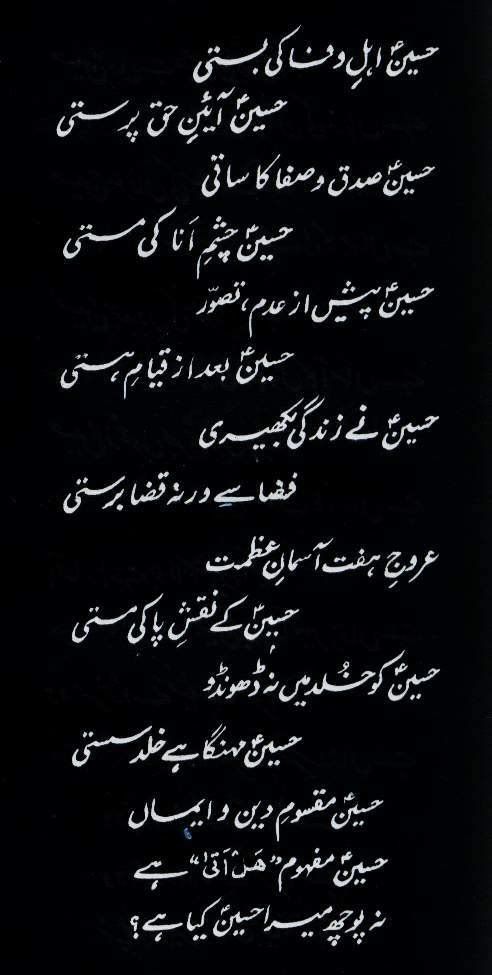 حسینؑ اہلِ وفا کی بستی
حسینؑ آئینِ حق پرستی
حسینؑ صدق و صفا کا ساقی
حسینؑ چشمِ اَنا کی مستی
حسینؑ پیش از عدم، تصوّر
حسینؑ بعد از قیامِ ہستی
حسینؑ نے زندگی بکھیری
فضا سے ورنہ قضا برستی
عروجِ ہفت آسمانِ عظمت
حسینؑ کے نقشِ پا کی مستی
حسینؑ کو خُلد میں نہ ڈھونڈو
حسینؑ مہنگا ہے خلد سستی
حسینؑ مقسومِ دین و ایماں
حسینؑ مفہوم "ھَلْ اَتٰی" ہے
نہ پوچھ میرا حسینؑ کیا ہے؟